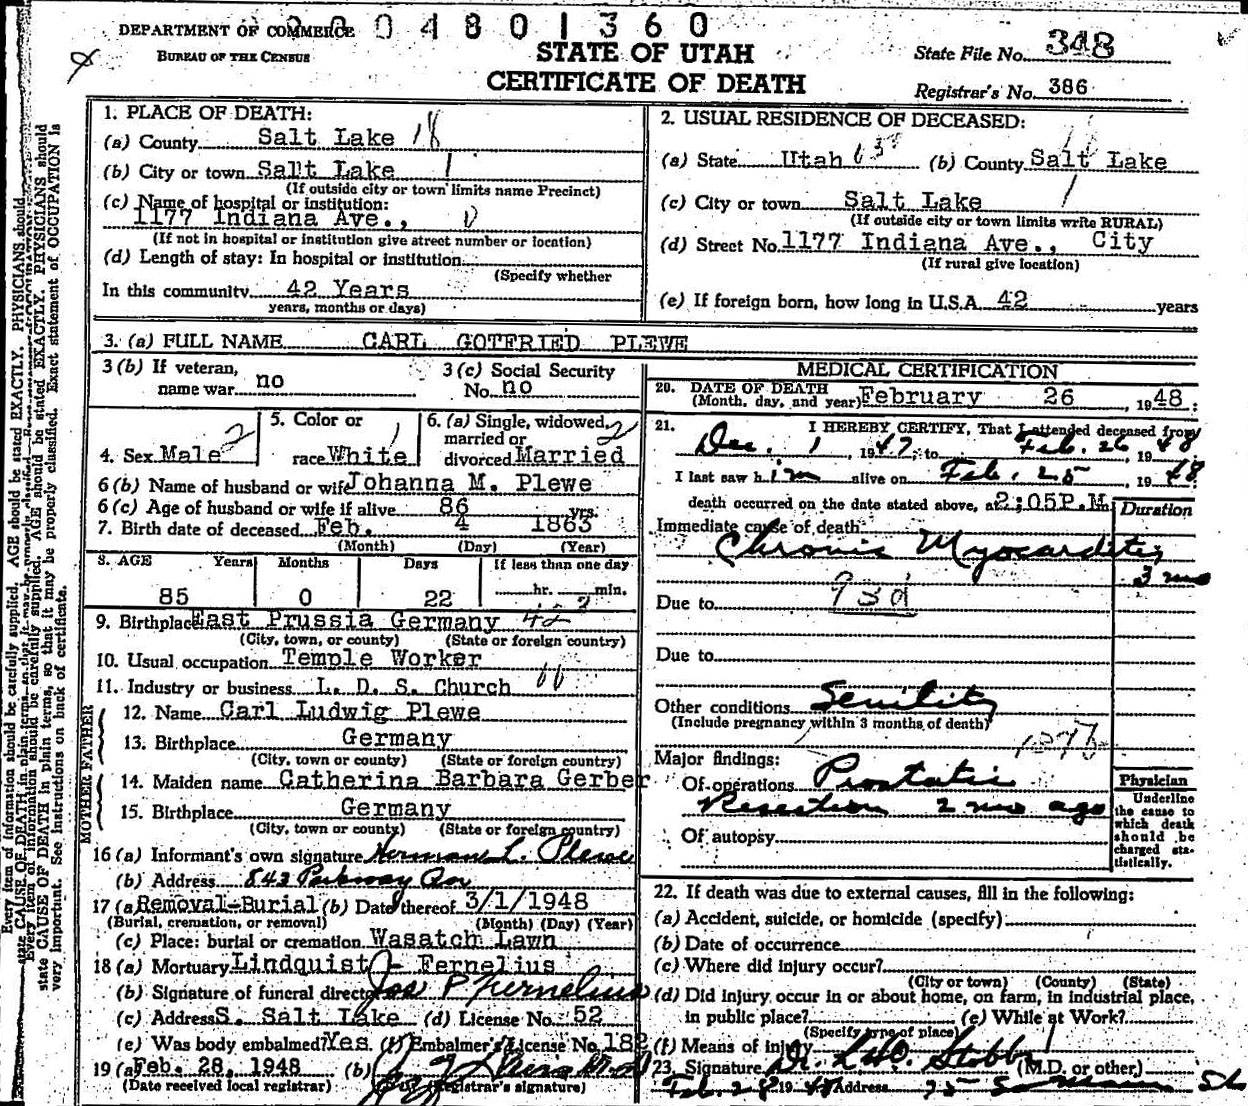 DEPARTMENT OF COMMERCE 0 4 8 0 1 3 6 0
BUREAU OF THE CENSUS
STATE OF UTAH
CERTIFICATE OF DEATH
State File No. 348
Registrar's No. 386
1. PLACE OF DEATH:
(a) County Salt Lake 18
(b) City or town Salt Lake 1
(If outside city or town limits name Precinct)
(c) Name of hospital or institution:
1177 Indiana Ave.,
(If not in hospital or institution give street number or location)
(d) Length of stay: In hospital or institution
(Specify whether
In this community 42 Years
years, months or days)
2. USUAL RESIDENCE OF DECEASED:
(a) State Utah (b) County Salt Lake
(c) City or town Salt Lake 1
(If outside city or town limits write RURAL)
(d) Street No. 1177 Indiana Ave., City
(If rural give location)
(e) If foreign born, how long in U.S.A. 42 years
3. (a) FULL NAME CARL GOTFRIED PLEWE
3 (b) If veteran, name war no
3 (c) Social Security No. no
4. Sex Male 2
5. Color or race White 1
6. (a) Single, widowed, married or divorced Married 2
6 (b) Name of husband or wife Johanna M. Plewe
6 (c) Age of husband or wife if alive 86 yrs.
7. Birth date of deceased Feb. 4 1863
(Month) (Day) (Year)
8. AGE Years Months Days If less than one day
85 0 22 hr. min.
9. Birthplace East Prussia Germany 42
(City, town, or county) (State or foreign country)
10. Usual occupation Temple Worker
11. Industry or business L. D. S. Church
FATHER
12. Name Carl Ludwig Plewe
13. Birthplace Germany
(City, town or county) (State or foreign country)
MOTHER
14. Maiden name Catherina Barbara Gerber
15. Birthplace Germany
(City, town or county) (State or foreign country)
16 (a) Informant's own signature Herman L. Plewe
(b) Address 843 Parkway Av
17 (a) Removal-Burial (b) Date thereof 3/1/1948
(Burial, cremation, or removal) (Month) (Day) (Year)
(c) Place: burial or cremation Wasatch Lawn
18 (a) Mortuary Lindquist - Fernelius
(b) Signature of funeral director Jos P Fernelius
(c) Address S. Salt Lake (d) License No. 52
(e) Was body embalmed? Yes. (f) Embalmer's License No. 182
19 (a) Feb. 28, 1948 (b)
(Date received local registrar) (Registrar's signature)
MEDICAL CERTIFICATION
20. DATE OF DEATH
(Month, day, and year) February 26 , 1948 :
21. I HEREBY CERTIFY, That I attended deceased from
Dec. 1 , 1947, to Feb. 26, 1948
I last saw him alive on Feb. 25, 1948
death occurred on the date stated above, at 2:05P.M.
Duration
Immediate cause of death
Chronic Myocarditis
3 mo
Due to 93d
Due to
Other conditions Senility
(Include pregnancy within 3 months of death)
Major findings:
Of operations Prostatic
Resection 2 mo ago
Of autopsy
Physician
Underline the cause to which death should be charged statistically.
22. If death was due to external causes, fill in the following:
(a) Accident, suicide, or homicide (specify)
(b) Date of occurrence
(c) Where did injury occur?
(City or town) (County) (State)
(d) Did injury occur in or about home, on farm, in industrial place,
in public place? (e) While at Work?
(Specify type of place)
(f) Means of injury
23. Signature (M.D. or other)
Feb. 28 1948 Address
Every item of information should be carefully supplied. AGE should be stated EXACTLY. PHYSICIANS should
state CAUSE OF DEATH in plain terms, so that it may be properly classified. Exact statement of OCCUPATION is
very important. See instructions on back of certificate.